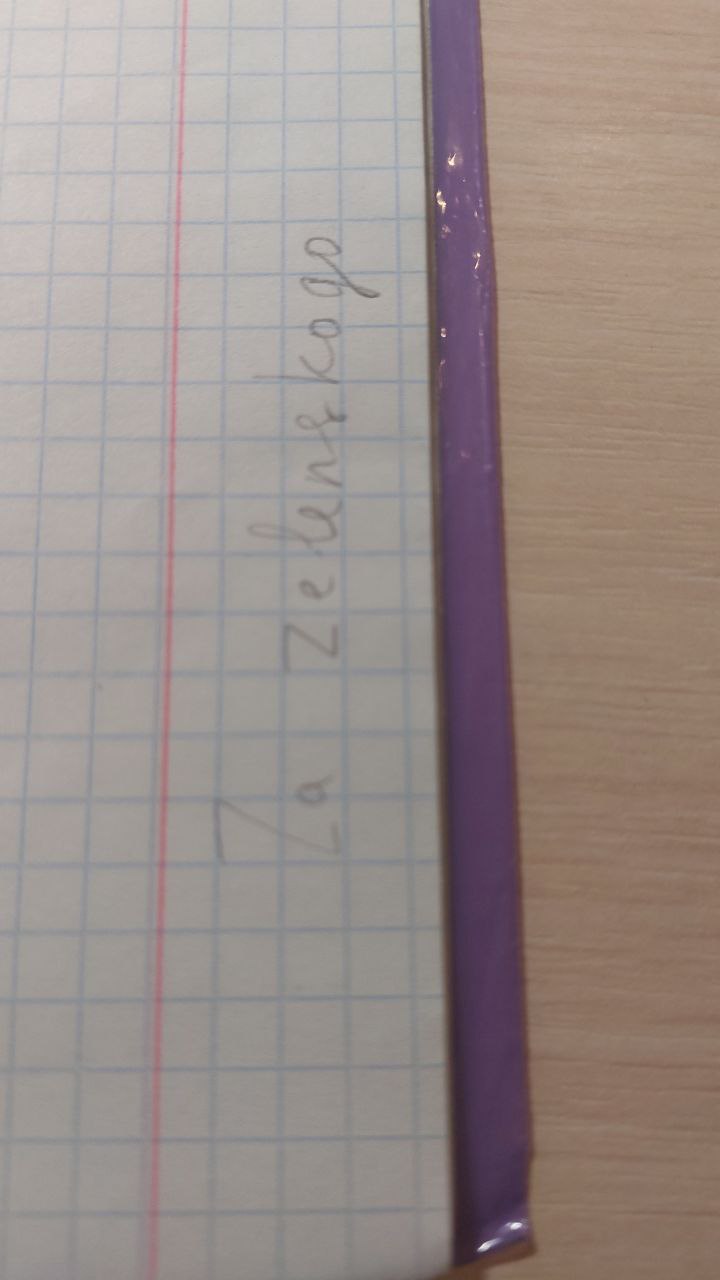 Za zelenskogo